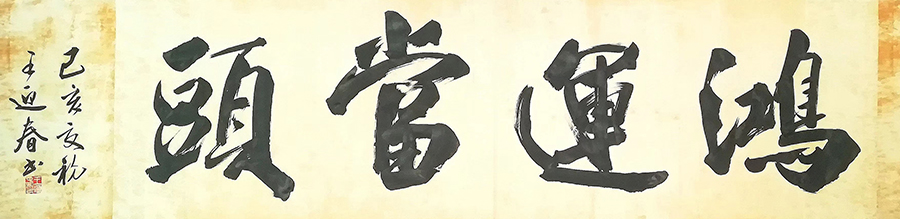 鴻運當頭
己亥
王迎春书